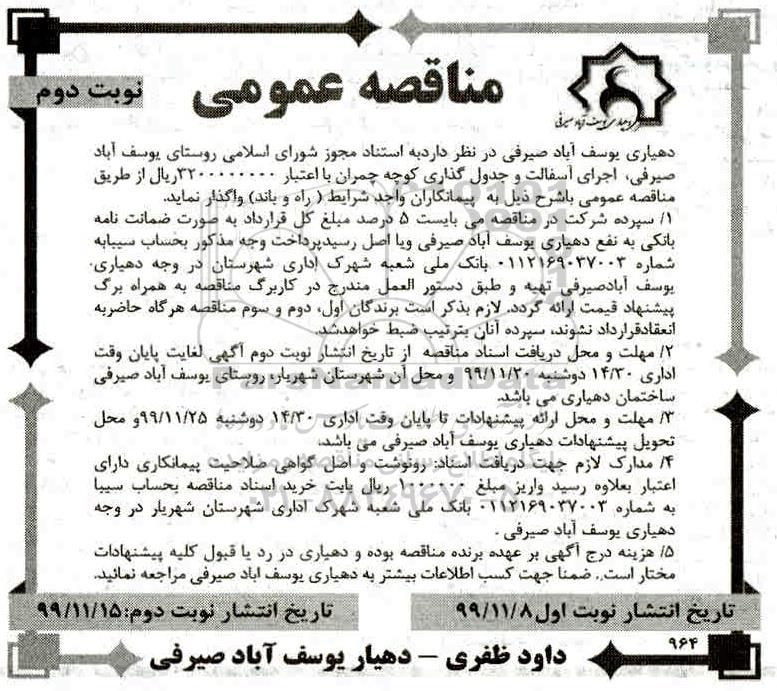 مناقصه عمومی
نوبت دوم
دهیاری یوسف آباد صیرفی
دهیاری یوسف آباد صیرفی در نظر داردبه استناد مجوز شورای اسلامی روستای یوسف آباد
صیرفی، اجرای آسفالت و جدول گذاری کوچه چمران با اعتبار ۳۲۰۰۰۰۰۰۰۰ریال از طریق
مناقصه عمومی باشرح ذیل به پیمانکاران واجد شرایط ( راه و باند) واگذار نماید.
۱/ سپرده شرکت در مناقصه می بایست ۵ درصد مبلغ کل قرارداد به صورت ضمانت نامه
بانکی به نفع دهیاری یوسف آباد صیرفی ویا اصل رسیدپرداخت وجه مذکور بحساب سیبابه
شماره ۰۱۱۲۱۶۹۰۳۷۰۰۳ بانک ملی شعبه شهرک اداری شهرستان در وجه دهیاری
یوسف آبادصیرفی تهیه و طبق دستور العمل مندرج در کاربرگ مناقصه به همراه برگ
پیشنهاد قیمت ارائه گردد. لازم بذکر است برندگان اول، دوم و سوم مناقصه هرگاه حاضربه
انعقادقرارداد نشوند، سپرده آنان بترتیب ضبط خواهدشد.
۲/ مهلت و محل دریافت اسناد مناقصه از تاریخ انتشار نوبت دوم آگهی لغایت پایان وقت
اداری ۱۴/۳۰ دوشنبه ۹۹/۱۱/۲۰ و محل آن شهرستان شهریار، روستای یوسف آباد صیرفی
ساختمان دهیاری می باشد.
۳/ مهلت و محل ارائه پیشنهادات تا پایان وقت اداری ۱۴/۳۰ دوشنبه ۹۹/۱۱/۲۵و محل
تحویل پیشنهادات دهیاری یوسف آباد صیرفی می باشد.
۴/ مدارک لازم جهت دریافت اسناد: رونوشت و اصل گواهی صلاحیت پیمانکاری دارای
اعتبار بعلاوه رسید واریز مبلغ ۱۰۰۰۰۰۰ ریال بابت خرید اسناد مناقصه بحساب سیبا
به شماره ۰۱۱۲۱۶۹۰۳۷۰۰۳ بانک ملی شعبه شهرک اداری شهرستان شهریار در وجه
دهیاری یوسف آباد صیرفی .
۵/ هزینه درج آگهی بر عهده برنده مناقصه بوده و دهیاری در رد یا قبول کلیه پیشنهادات
مختار است.. ضمنا جهت کسب اطلاعات بیشتر به دهیاری یوسف اباد صیرفی مراجعه نمائید.
تاریخ انتشار نوبت اول۹۹/۱۱/۸
تاریخ انتشار نوبت دوم:۹۹/۱۱/۱۵
۹۶۴
داود ظفری – دهیار یوسف آباد صیرفی
ParsNamadData